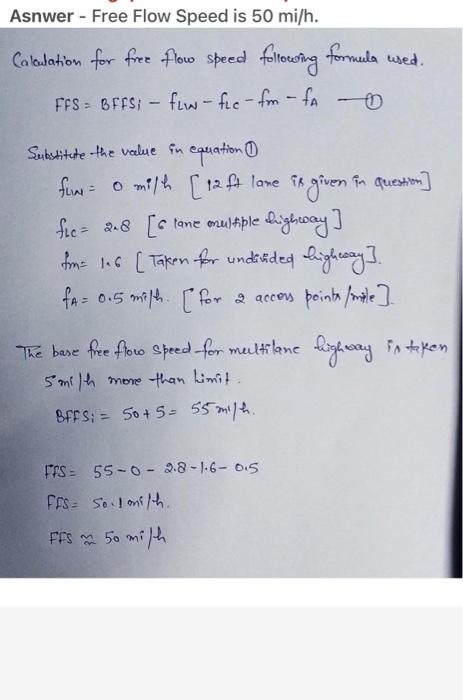 Asnwer - Free Flow Speed is 50 mi/h.
Calculation for free flow speed following formula used.
FFS = BFFSi - fLW - fLC - fm - fA — ①
Substitute the value in equation ①
fLW = 0 mi/h [12 ft lane is given in question]
fLC = 2.8 [6 lane multiple highway]
fm = 1.6 [Taken for undivided highway].
fA = 0.5 mi/h. [for 2 access points/mile].
The base free flow speed for multilane highway is taken
5 mi/h more than Limit.
BFFSi = 50 + 5 = 55 mi/h.
FFS = 55 - 0 - 2.8 - 1.6 - 0.5
FFS = 50.1 mi/h.
FFS ≈ 50 mi/h